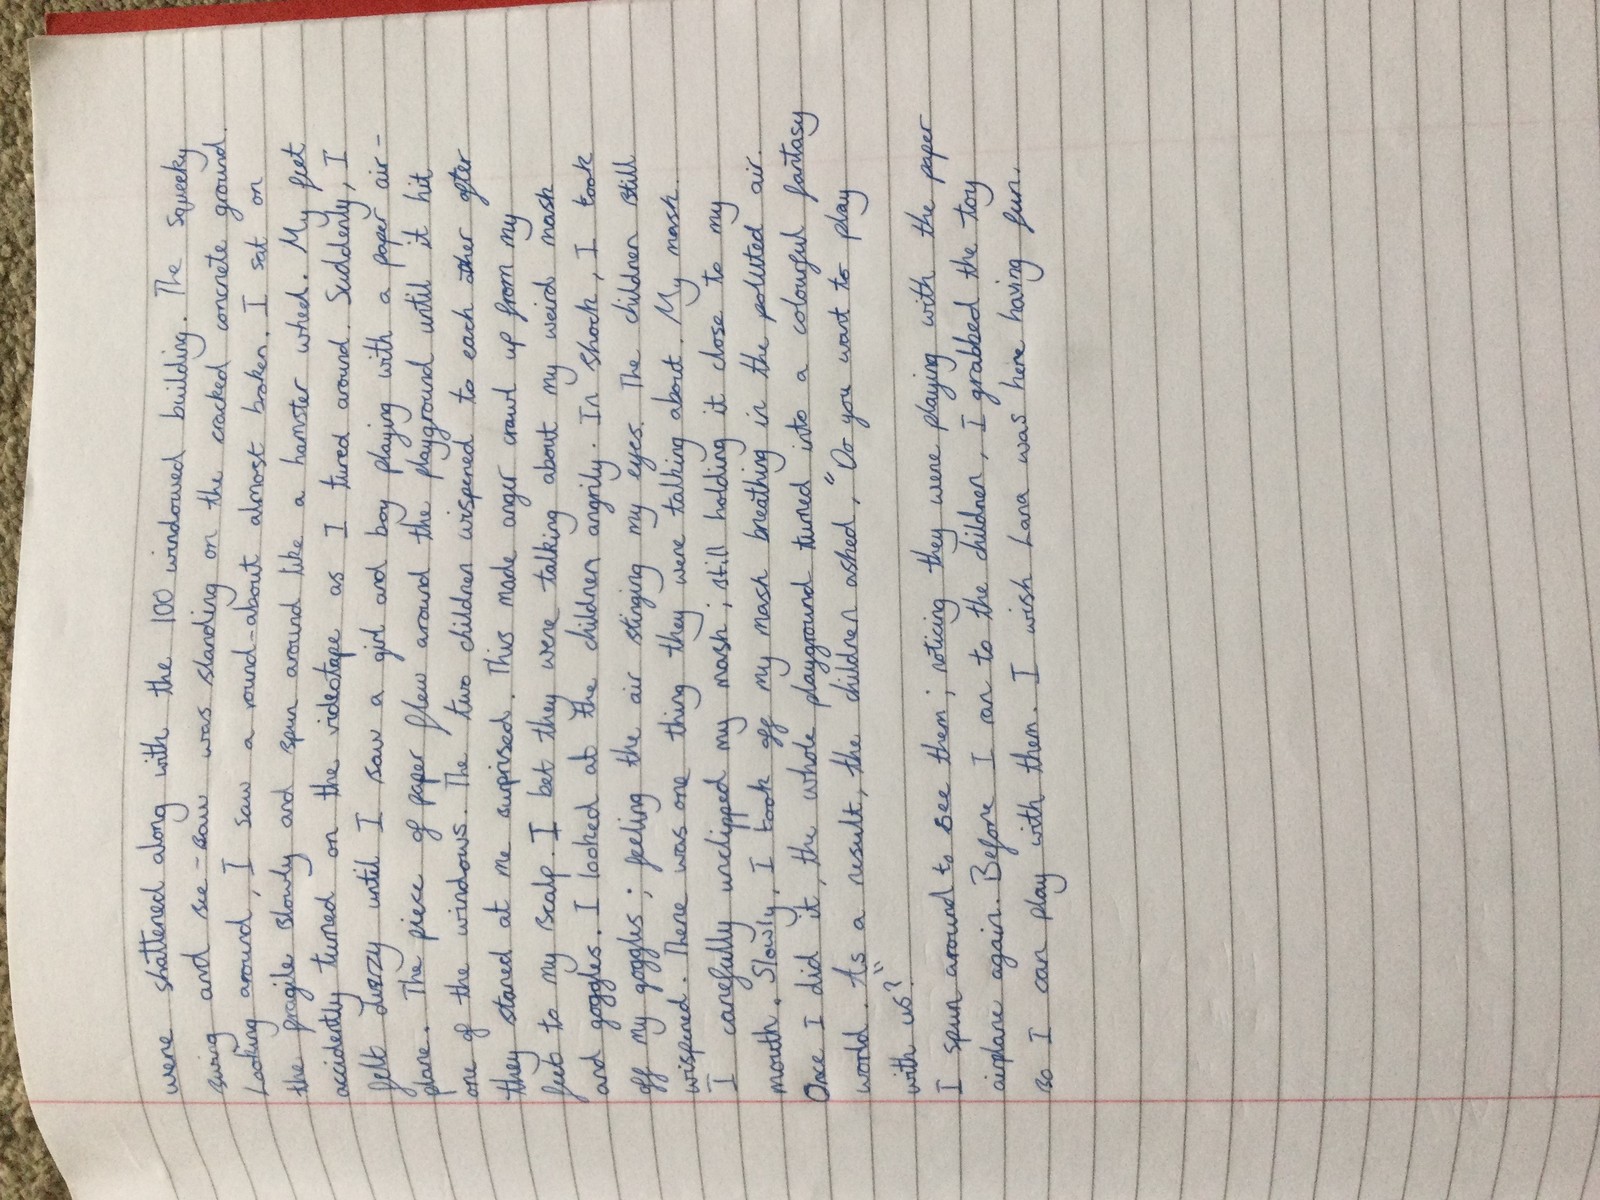 were shattered along with the 100 windowed building. The squeeky
swing and see-saw was standing on the cracked concrete ground.
Looking around, I saw a round-about almost broken. I sat on
the fragile slowly and spun around like a hamster wheel. My feet
accidently turned on the videotape as I tured around. Suddenly, I
felt fuzzy until I saw a girl and boy playing with a paper air-
plane. The piece of paper flew around the playground until it hit
one of the windows. The two children wispened to each other after
they stared at me surprised. This made anger crawl up from my
feet to my scalp. I bet they were talking about my weird mask
and goggles. I looked at the children angrily. In shock, I took
off my goggles; feeling the air stinging my eyes. The children still
wispened. There was one thing they were talking about. My mask.
I carefully unclipped my mask; still holding it close to my
mouth. Slowly, I took off my mask breathing in the polluted air.
Once I did it, the whole playground turned into a colourful fantasy
world. As a result, the children asked, "Do you want to play
with us?"
I spun around to see them; noticing they were playing with the paper
airplane again. Before I ran to the children, I grabbed the toy
so I can play with them. I wish Lana was here having fun.